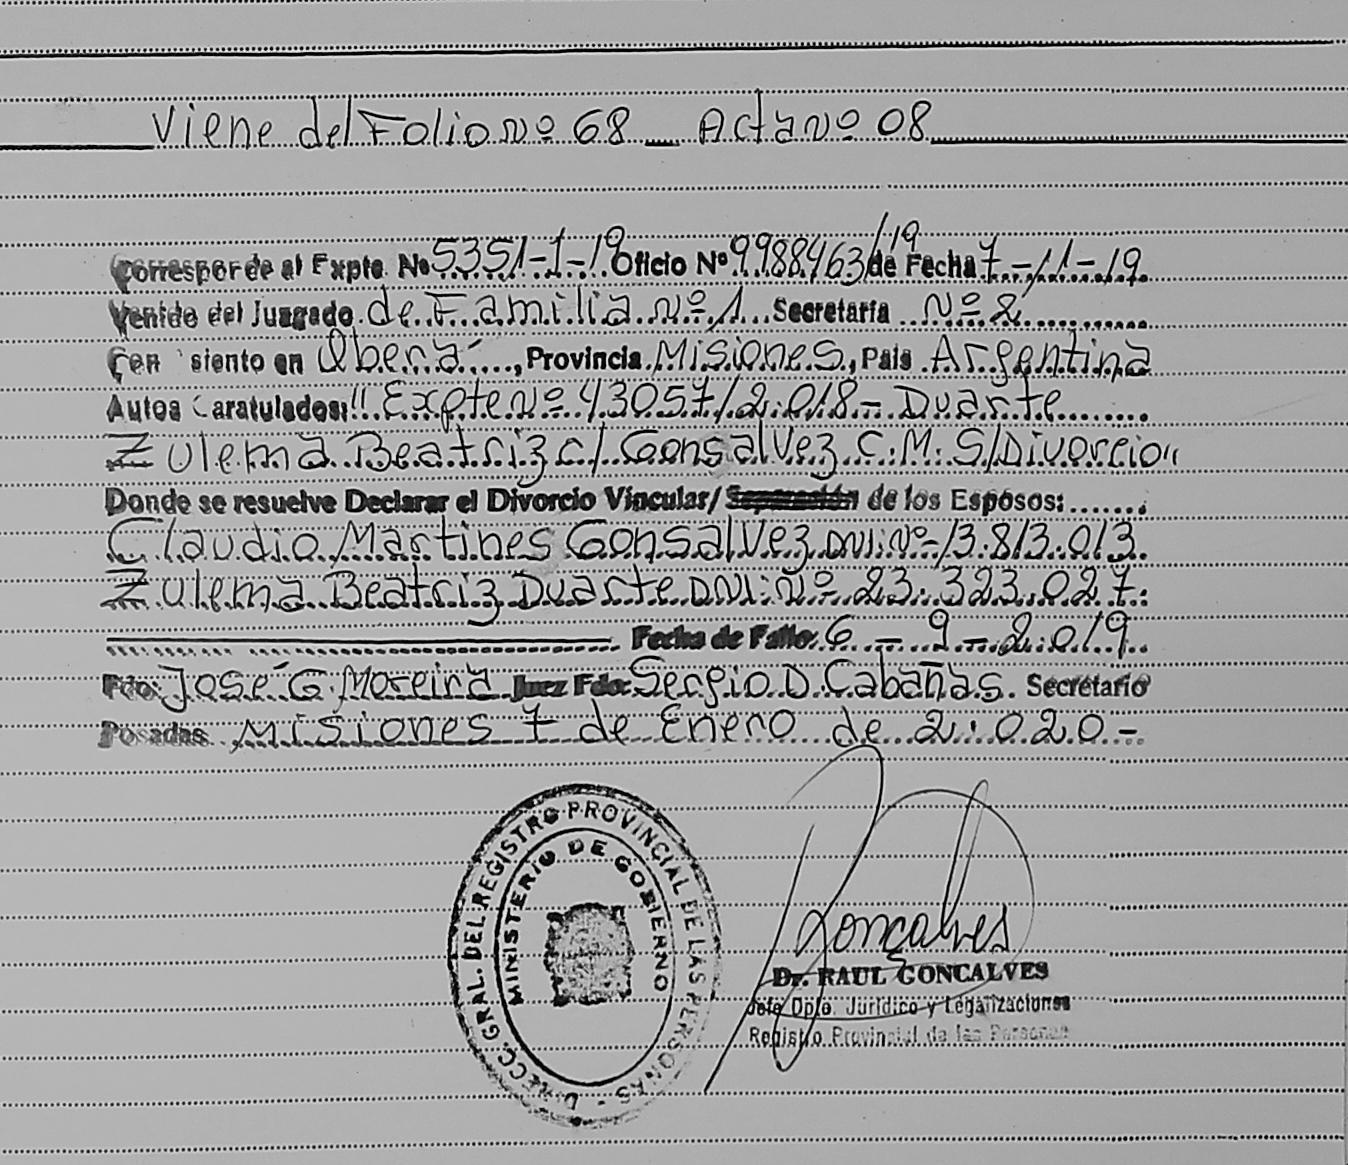 Viene del Folio nº 68 Acta nº 08
Corresponde al Expte. Nº 5351-1-19 Oficio Nº 9988463/19 de Fecha 7-11-19.
Venido del Juzgado de Familia nº 1 Secretaría Nº 2
Con siento en Oberá, Provincia Misiones, País Argentina
Autos Caratulados: "Expte nº 43057/2.018- Duarte
Zulema Beatriz c/ Gonsalvez C. M. S/Divorcio"
Donde se resuelve Declarar el Divorcio Vincular/ Separación de los Esposos:
Claudio Martines Gonsalvez DNI: Nº 13.813.013.
Zulema Beatriz Duarte DNI: Nº 23.323.027.
Fecha de Fallo: 6-9-2.019.
Fdo: José G. Moreira Juez Fdo: Sergio D. Cabañas. Secretario
Posadas Misiones 7 de Enero de 2.020-
DIRECC. GRAL. DEL REGISTRO PROVINCIAL DE LAS PERSONAS -
MINISTERIO DE GOBIERNO
Gonçalves
Dr. RAUL GONCALVES
Jefe Dpto. Jurídico y Legalizaciones
Registro Provincial de las Personas